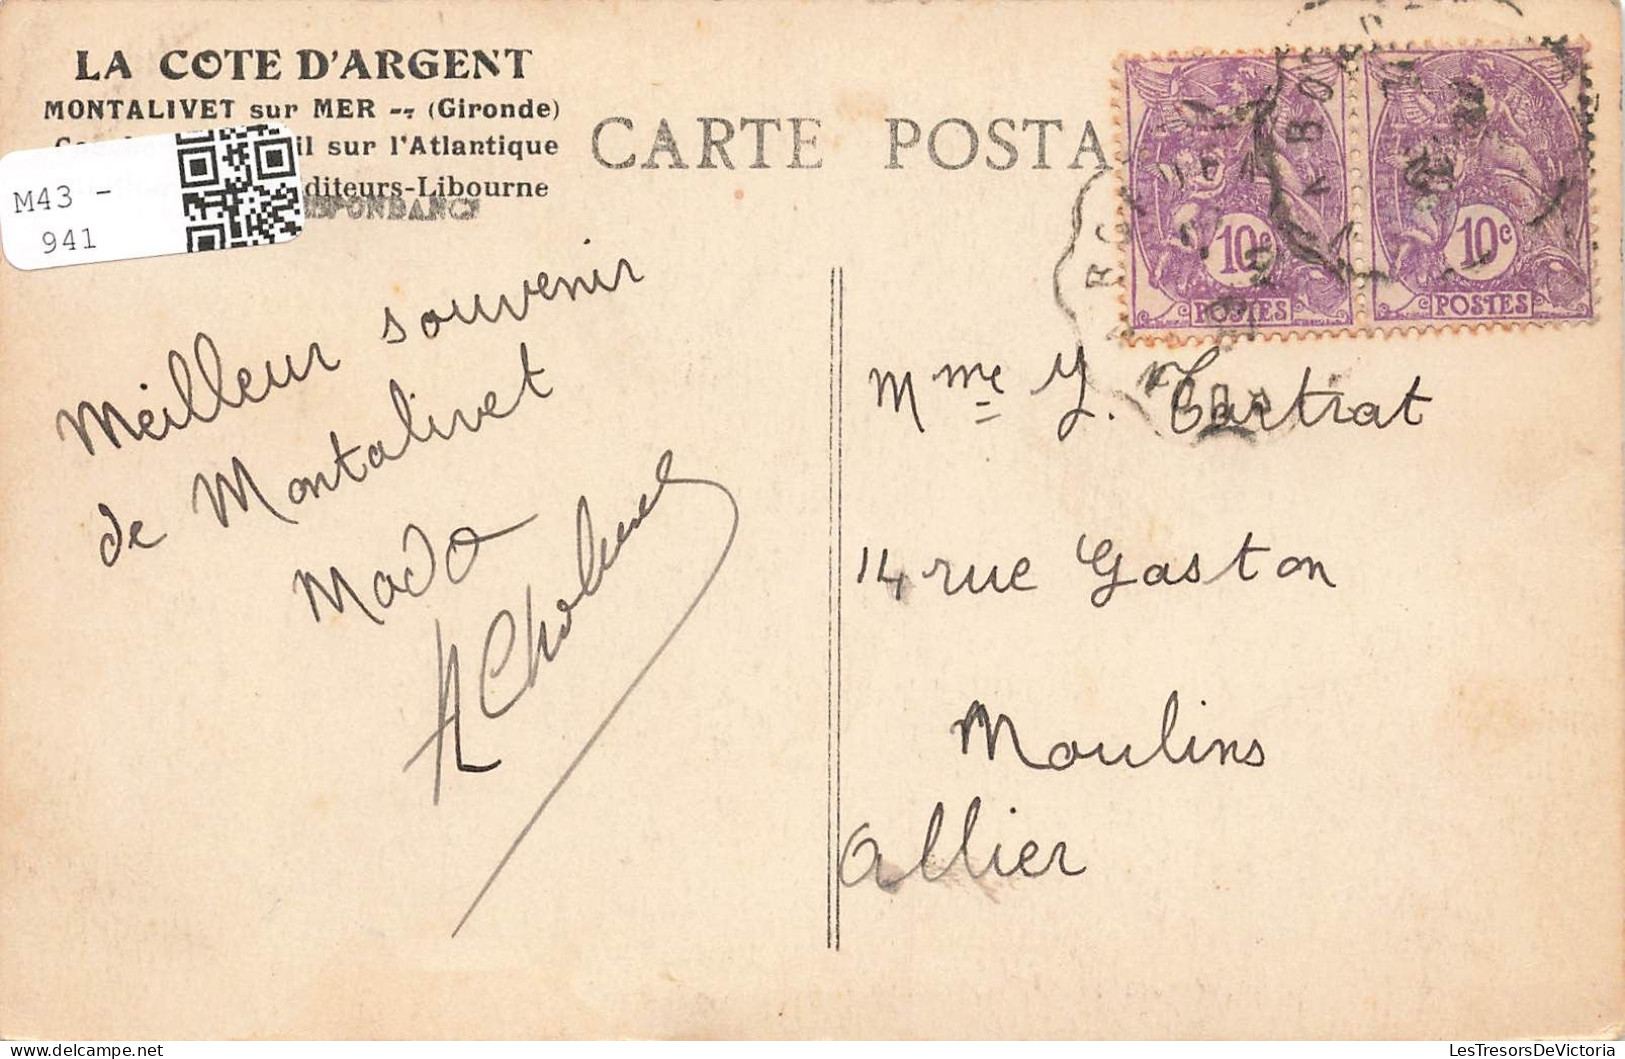 LA COTE D'ARGENT
MONTALIVET sur MER -- (Gironde)
il sur l'Atlantique
diteurs-Libourne
CARTE POSTA
M43 -
941
10c
POSTES
10c
POSTES
Meilleur souvenir
de Montalivet
Mado
Mme Y. Tartrat
14 rue Gaston
Moulins
Allier
LesTresorsDeVictoria